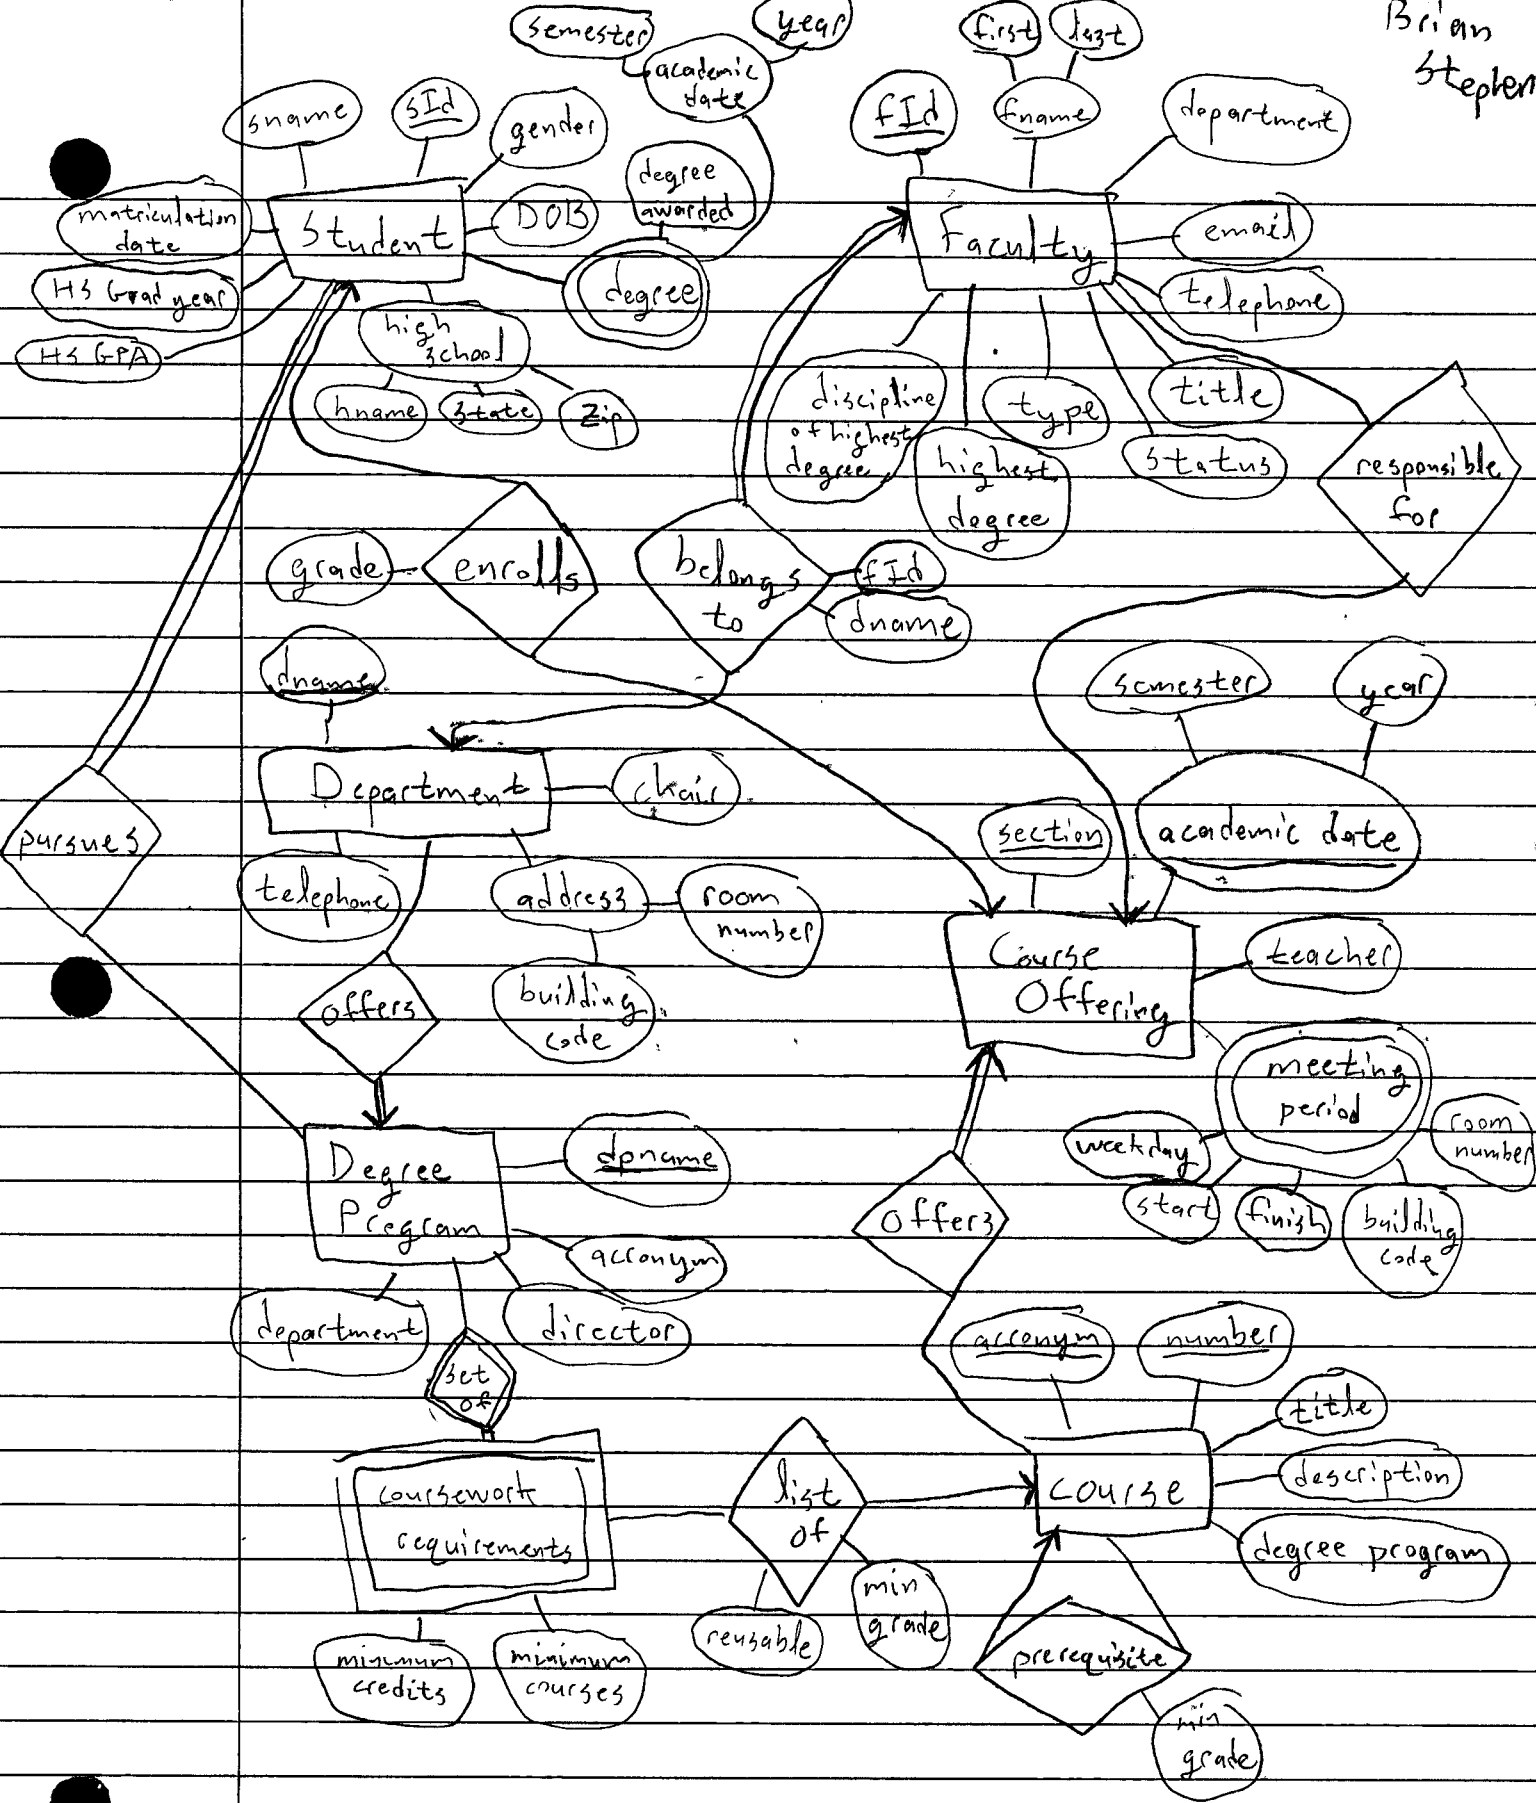 Brian
Stephen
semester
year
academic
date
first
last
sname
sId
gender
fId
fname
department
degree
awarded
matriculation
date
Student
DOB
Faculty
email
HS Grad year
degree
telephone
HS GPA
high
school
hname
state
zip
discipline
of highest
degree
type
title
highest
degree
status
responsible
for
grade
enrolls
belongs
to
fId
dname
dname
semester
year
Department
chair
pursues
section
academic date
telephone
address
room
number
Course
Offering
teacher
offers
building
code
meeting
period
weekday
room
number
start
finish
building
code
Degree
Program
dpname
acronym
offers
department
director
set
of
acronym
number
title
coursework
requirements
list
of
course
description
degree program
min
grade
reusable
prerequisite
minimum
credits
minimum
courses
min
grade